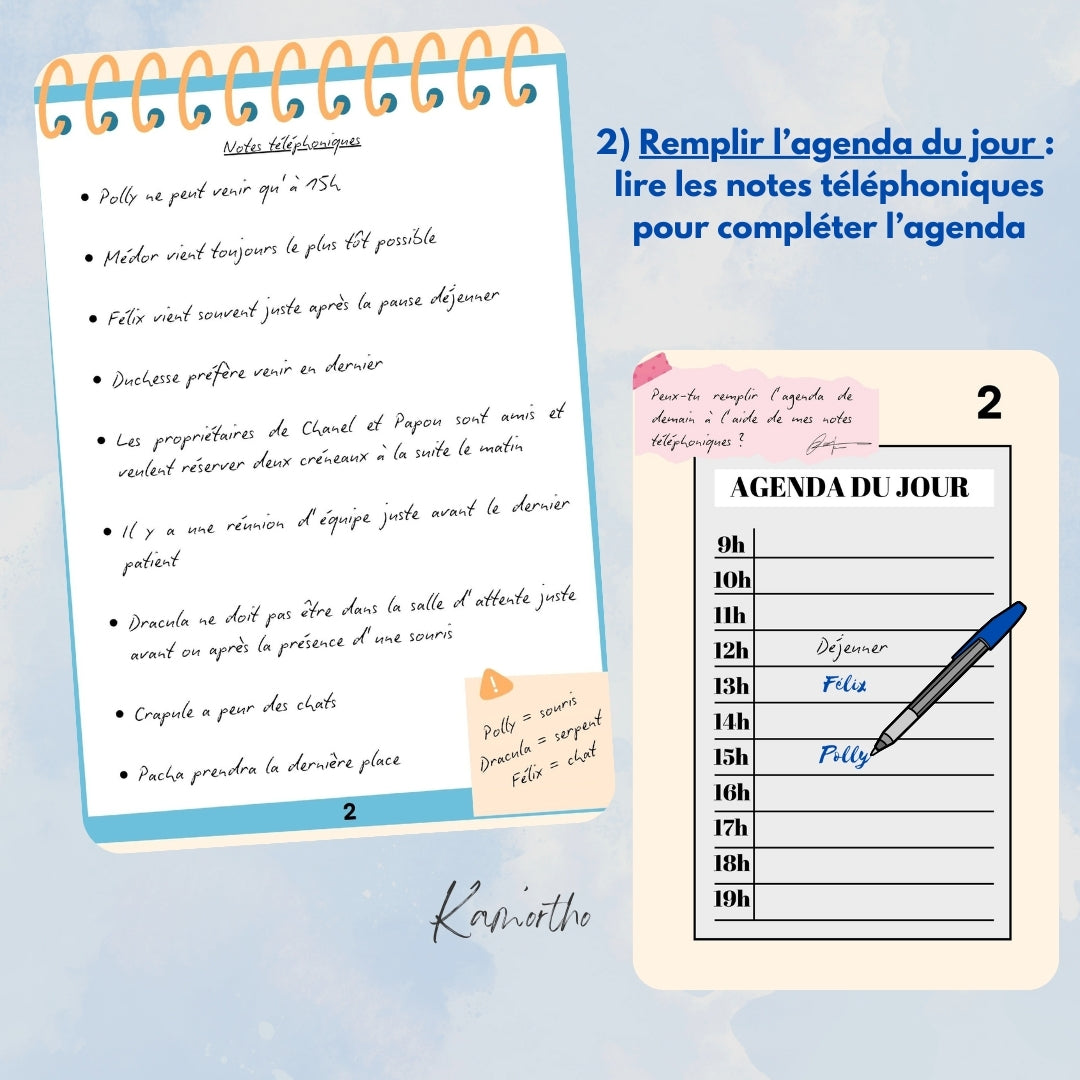 Notes téléphoniques
Polly ne peut venir qu'à 15h
Médor vient toujours le plus tôt possible
Félix vient souvent juste après la pause déjeuner
Duchesse préfère venir en dernier
Les propriétaires de Chanel et Papou sont amis et
veulent réserver deux créneaux à la suite le matin
Il y a une réunion d'équipe juste avant le dernier
patient
Dracula ne doit pas être dans la salle d'attente juste
avant ou après la présence d'une souris
Crapule a peur des chats
Pacha prendra la dernière place
Polly = souris
Dracula = serpent
Félix = chat
2
Kam'ortho
2) Remplir l'agenda du jour :
lire les notes téléphoniques
pour compléter l'agenda
Peux-tu remplir l'agenda de
demain à l'aide de mes notes
téléphoniques ?
2
AGENDA DU JOUR
9h
10h
11h
12h Déjeuner
13h Félix
14h
15h Polly
16h
17h
18h
19h